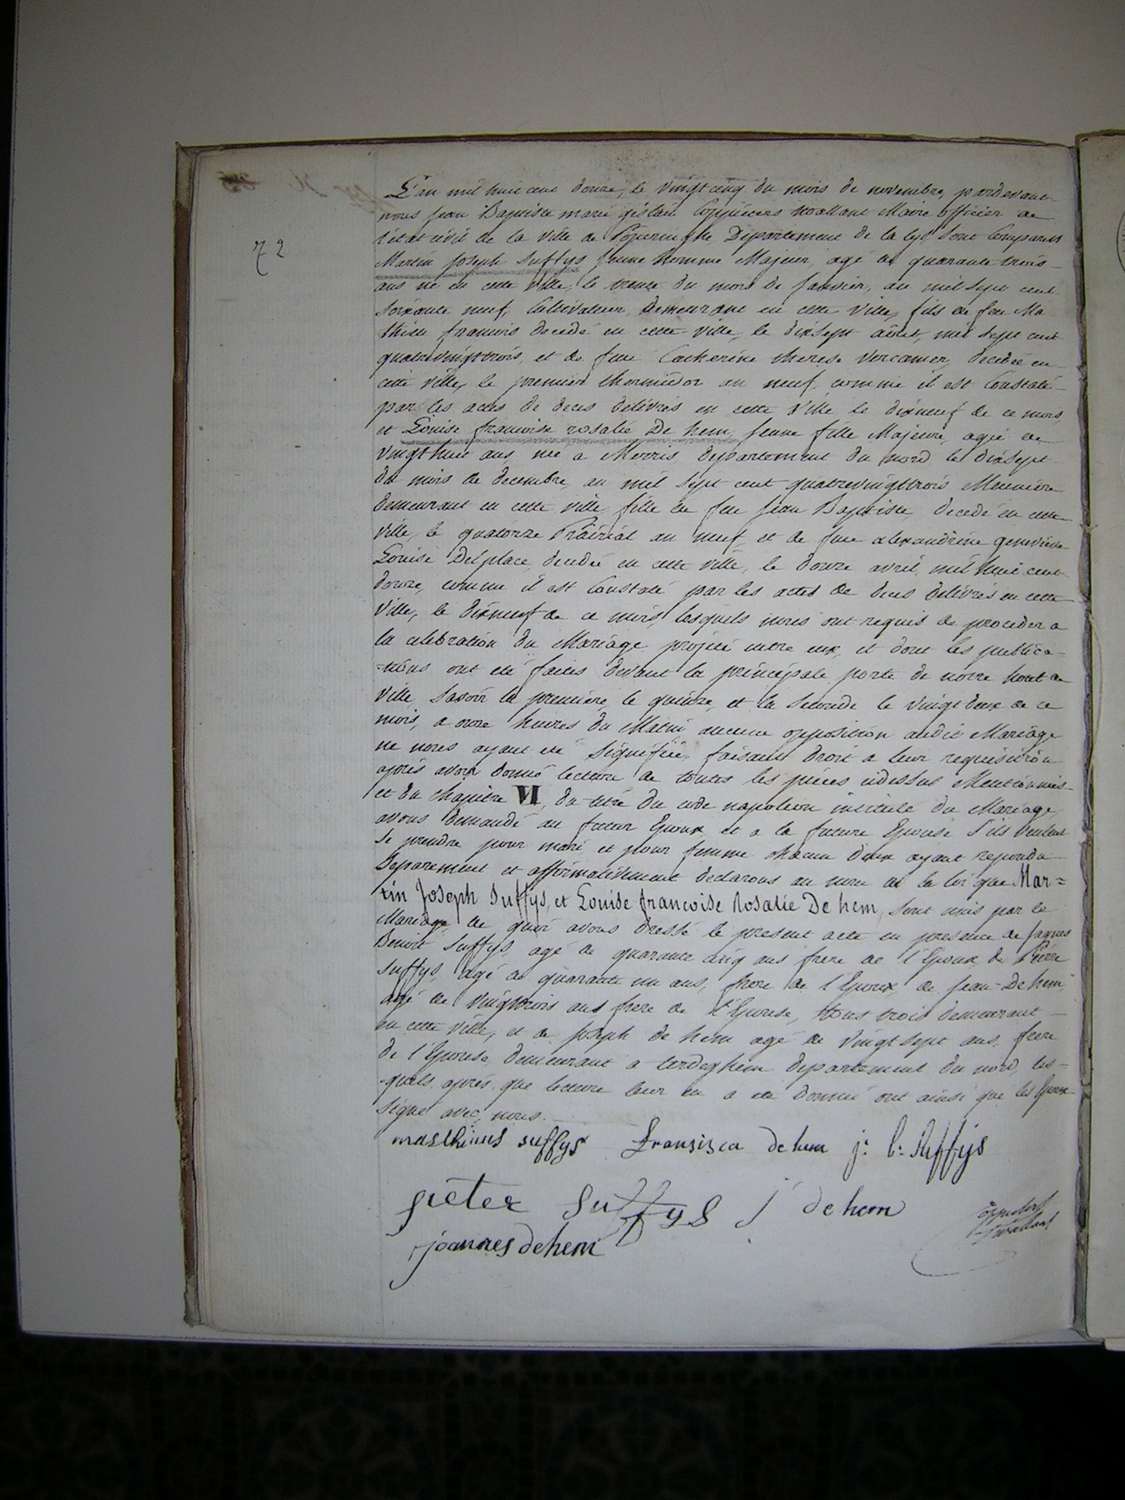 72
L'an mil huit cent douze, le vingt cinq du mois de novembre, pardevant
nous jean Baptiste marie gislain Coppieters Wallant Maire officier de
l'état civil de la ville de Poperinghe Département de la Lys sont Comparus
Martin Joseph Suffys jeune homme Majeur, agé de quarante trois
ans né en cette ville, le du mois de janvier, an mil sept cent
soixante neuf, Cultivateur, Demeurant en cette Ville, fils de feu Ma
thieu francois decedé en cette ville, le dixsept août, mil sept cent
quatrevingttrois, et de feue Catherine therese Vercamer, decedée en
cette ville, le premier thermidor an neuf, comme il est Constaté
par les actes de deces delivrés en cette Ville le dixneuf de ce mois,
et Louise francoise rosalie De hem, jeune fille Majeure, agée de
vingthuit ans née a Merris departement du nord le dixsept
du mois de decembre, an mil sept cent quatrevingttrois Meuniere
demeurant en cette ville, fille de feu jean Baptiste, decedé en cette
ville, le quatorze Prairial an neuf, et de feue alexandrine genevieve
Louise Delplace decedée en cette ville, le douze avril, mil huit cent
douze, comme il est Constaté par les actes de deces delivrés en cette
Ville, le dixneuf de ce mois, lesquels nous ont requis de proceder a
la celebration du Mariage projeté entre eux, et dont les publica-
-tions ont été faites devant la principale porte de notre hotel de
ville, Savoir la premiere le quinze, et la Seconde le vingt deux de ce
mois, a onze heures du Matin aucune opposition audit Mariage
ne nous ayant été signifiée, faisant droit a leur requisition
après avoir donné lecture de toutes les pieces cidessus Mentionnées
et du chapitre VI, du titre du code napoleon intitulé du Mariage,
avons demandé au futur Epoux, et a la future Epouse s'ils veulent
se prendre pour mari et pour femme chacun deux ayant repondu
Separement et affirmativement declarons au nom de la loi que Mar=
tin Joseph Suffys, et Louise francoise Rosalie De hem, sont unis par le
Mariage de quoi avons dressé le present acte en presence de jaques
Benoit Suffys agé de quarante cinq ans frere de l'Epoux, de Pierre
Suffys, agé de quarante un ans, frere de l'Epoux, de jean De hem
agé de vingttrois ans frere de l'Epouse, tous trois demeurant
en cette ville, et de joseph de hem agé de vingt sept ans, frere
de l'Epouse, demeurant a terdeghem departement du nord, les-
-quels après que lecture leur en a été donnée ont ainsi que les Epoux
signé avec nous.
Marthinus Suffys Fransisca de hem j: b: Suffijs
pieter Suffys j de hem
joannes de hem